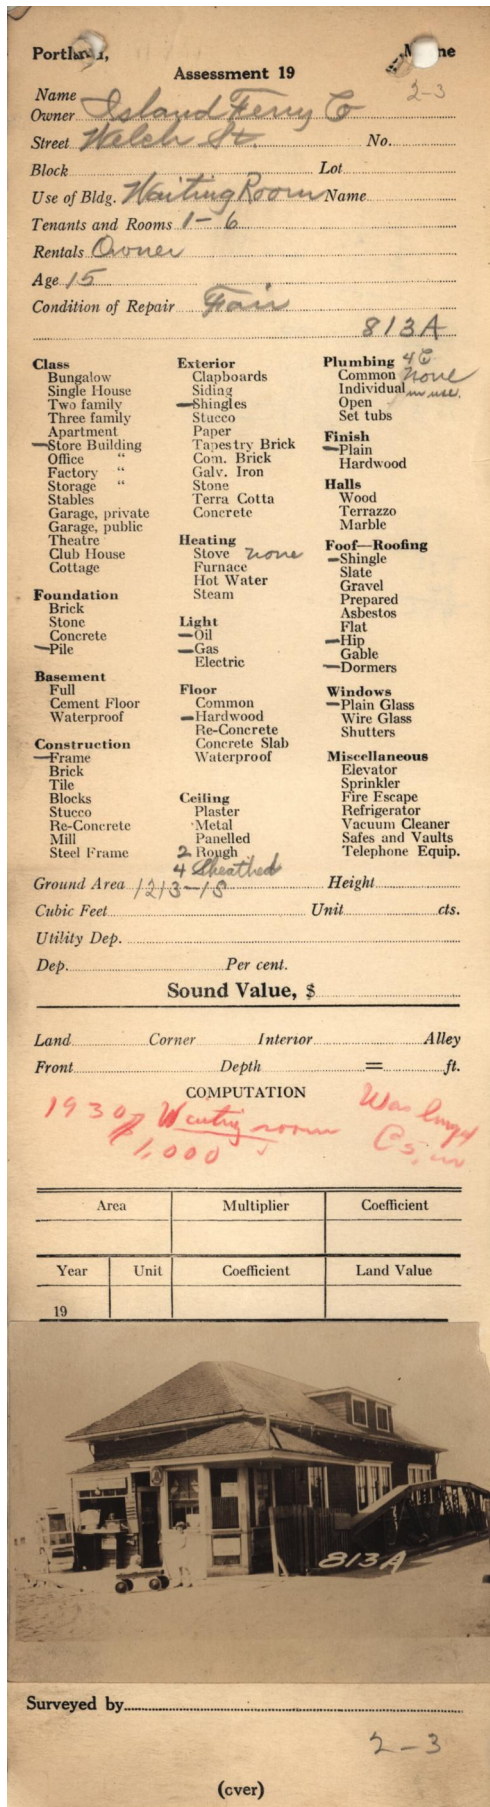 Portland, Maine
Assessment 19
2-3
Name
Owner Island Ferry Co
Street Welch St. No.
Block Lot
Use of Bldg. Waiting Room Name
Tenants and Rooms 1-6
Rentals Owner
Age 15
Condition of Repair Fair
813A
Class
Bungalow
Single House
Two family
Three family
Apartment
Store Building
Office "
Factory "
Storage "
Stables
Garage, private
Garage, public
Theatre
Club House
Cottage
Foundation
Brick
Stone
Concrete
Pile
Basement
Full
Cement Floor
Waterproof
Construction
Frame
Brick
Tile
Blocks
Stucco
Re-Concrete
Mill
Steel Frame
Exterior
Clapboards
Siding
Shingles
Stucco
Paper
Tapestry Brick
Com. Brick
Galv. Iron
Stone
Terra Cotta
Concrete
Heating
Stove none
Furnace
Hot Water
Steam
Light
Oil
Gas
Electric
Floor
Common
Hardwood
Re-Concrete
Concrete Slab
Waterproof
Ceiling
Plaster
Metal
Panelled
2 Rough
4 Sheathed
Plumbing 4 C
Common none
Individual in use.
Open
Set tubs
Finish
Plain
Hardwood
Halls
Wood
Terrazzo
Marble
Foof—Roofing
Shingle
Slate
Gravel
Prepared
Asbestos
Flat
Hip
Gable
Dormers
Windows
Plain Glass
Wire Glass
Shutters
Miscellaneous
Elevator
Sprinkler
Fire Escape
Refrigerator
Vacuum Cleaner
Safes and Vaults
Telephone Equip.
Ground Area 1213-1S Height
Cubic Feet Unit cts.
Utility Dep.
Dep. Per cent.
Sound Value, $
Land Corner Interior Alley
Front Depth = ft.
COMPUTATION
1930 Waiting room Was
$1,000
Area Multiplier Coefficient
Year Unit Coefficient Land Value
19
813A
Surveyed by
2-3
(cver)